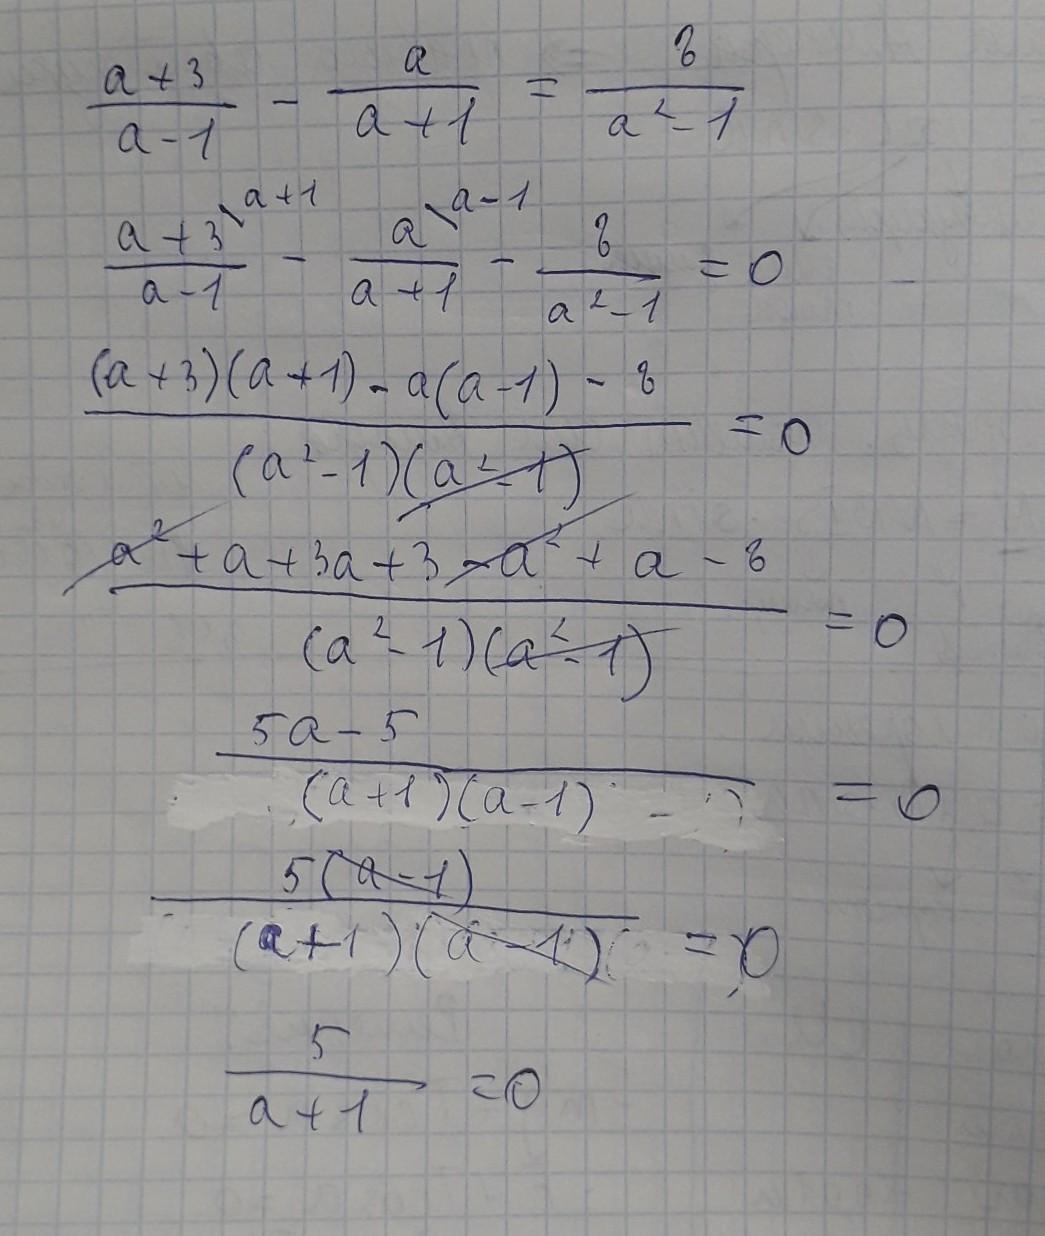 \frac{a+3}{a-1} - \frac{a}{a+1} = \frac{8}{a^2-1}
\frac{a+3^{\backslash a+1}}{a-1} - \frac{a^{\backslash a-1}}{a+1} - \frac{8}{a^2-1} = 0
\frac{(a+3)(a+1)-a(a-1)-8}{(a^2-1)(a^2-1)} = 0
\frac{a^2+a+3a+3-a^2+a-8}{(a^2-1)(a^2-1)} = 0
\frac{5a-5}{(a+1)(a-1)} = 0
\frac{5(a-1)}{(a+1)(a-1)} = 0
\frac{5}{a+1} = 0